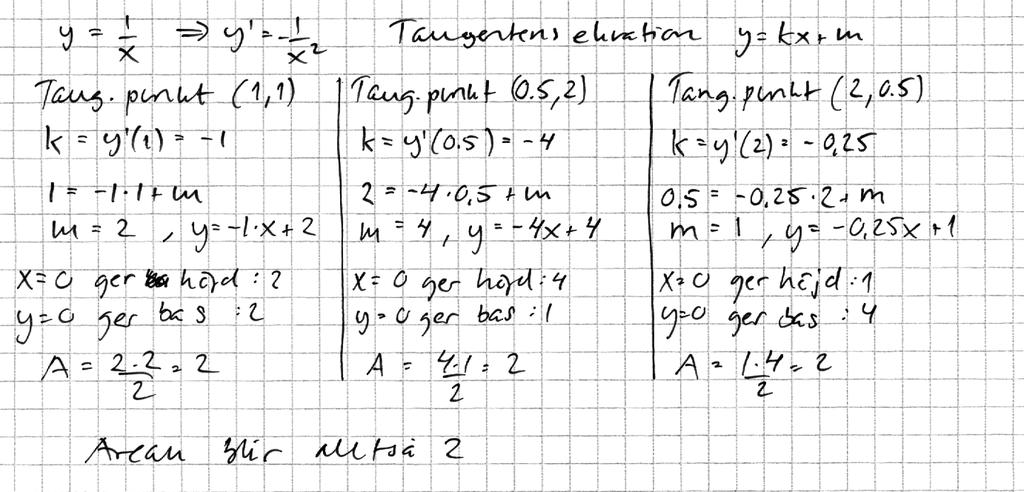 y = 1/x ⇒ y' = -1/x² Tangentens ekvation y = kx + m
Tang. punkt (1,1)
k = y'(1) = -1
1 = -1·1 + m
m = 2 , y = -1·x + 2
x = 0 ger höjd : 2
y = 0 ger bas : 2
A = 2·2/2 = 2
Tang. punkt (0.5, 2)
k = y'(0.5) = -4
2 = -4·0,5 + m
m = 4 , y = -4x + 4
x = 0 ger höjd : 4
y = 0 ger bas : 1
A = 4·1/2 = 2
Tang. punkt (2, 0.5)
k = y'(2) = -0,25
0.5 = -0,25·2 + m
m = 1 , y = -0,25x + 1
x = 0 ger höjd : 1
y = 0 ger bas : 4
A = 1·4/2 = 2
Arean blir alltså 2